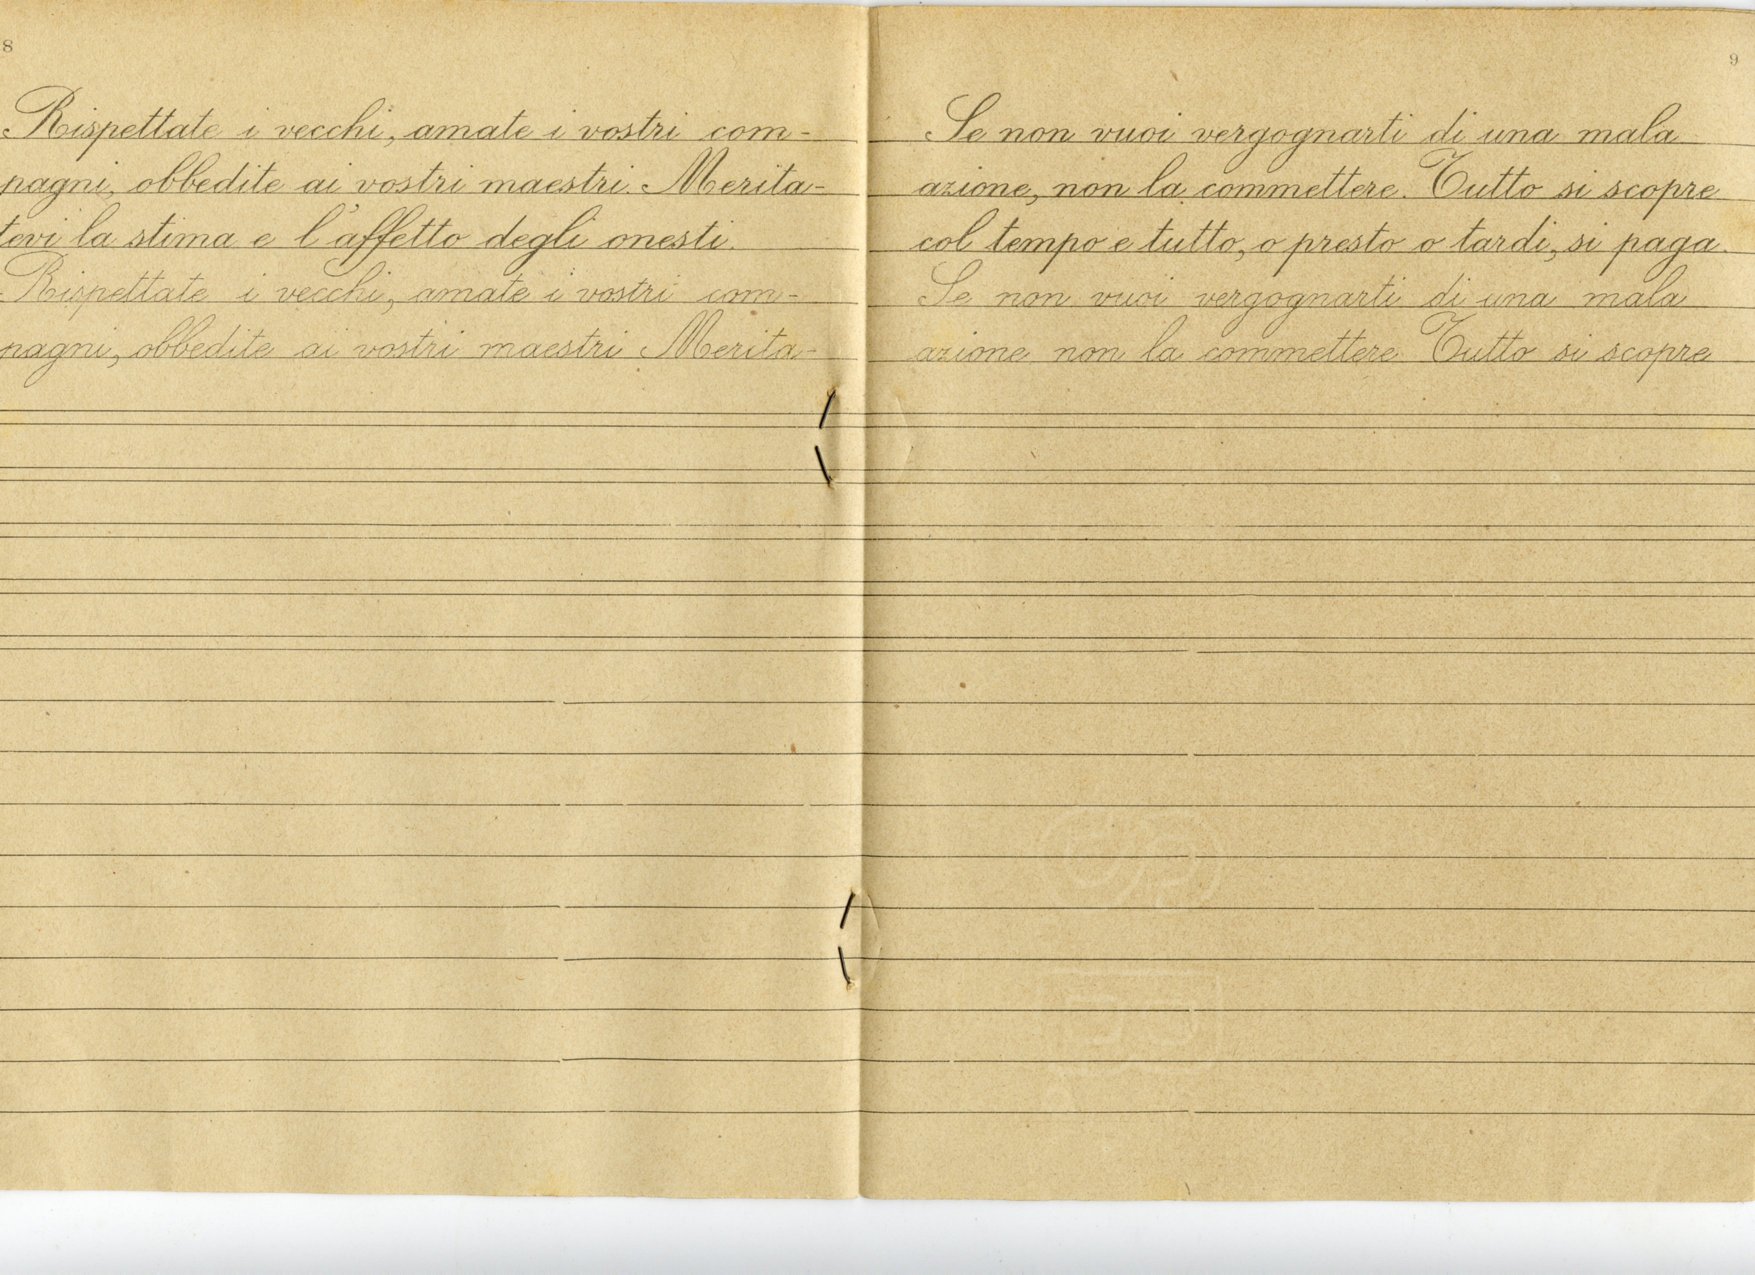 8
Rispettate i vecchi, amate i vostri com-
pagni, obbedite ai vostri maestri. Merita-
tevi la stima e l'affetto degli onesti.
Rispettate i vecchi, amate i vostri com-
pagni, obbedite ai vostri maestri Merita-
9
Se non vuoi vergognarti di una mala
azione, non la commettere. Tutto si scopre
col tempo e tutto, o presto o tardi, si paga.
Se non vuoi vergognarti di una mala
azione non la commettere Tutto si scopre